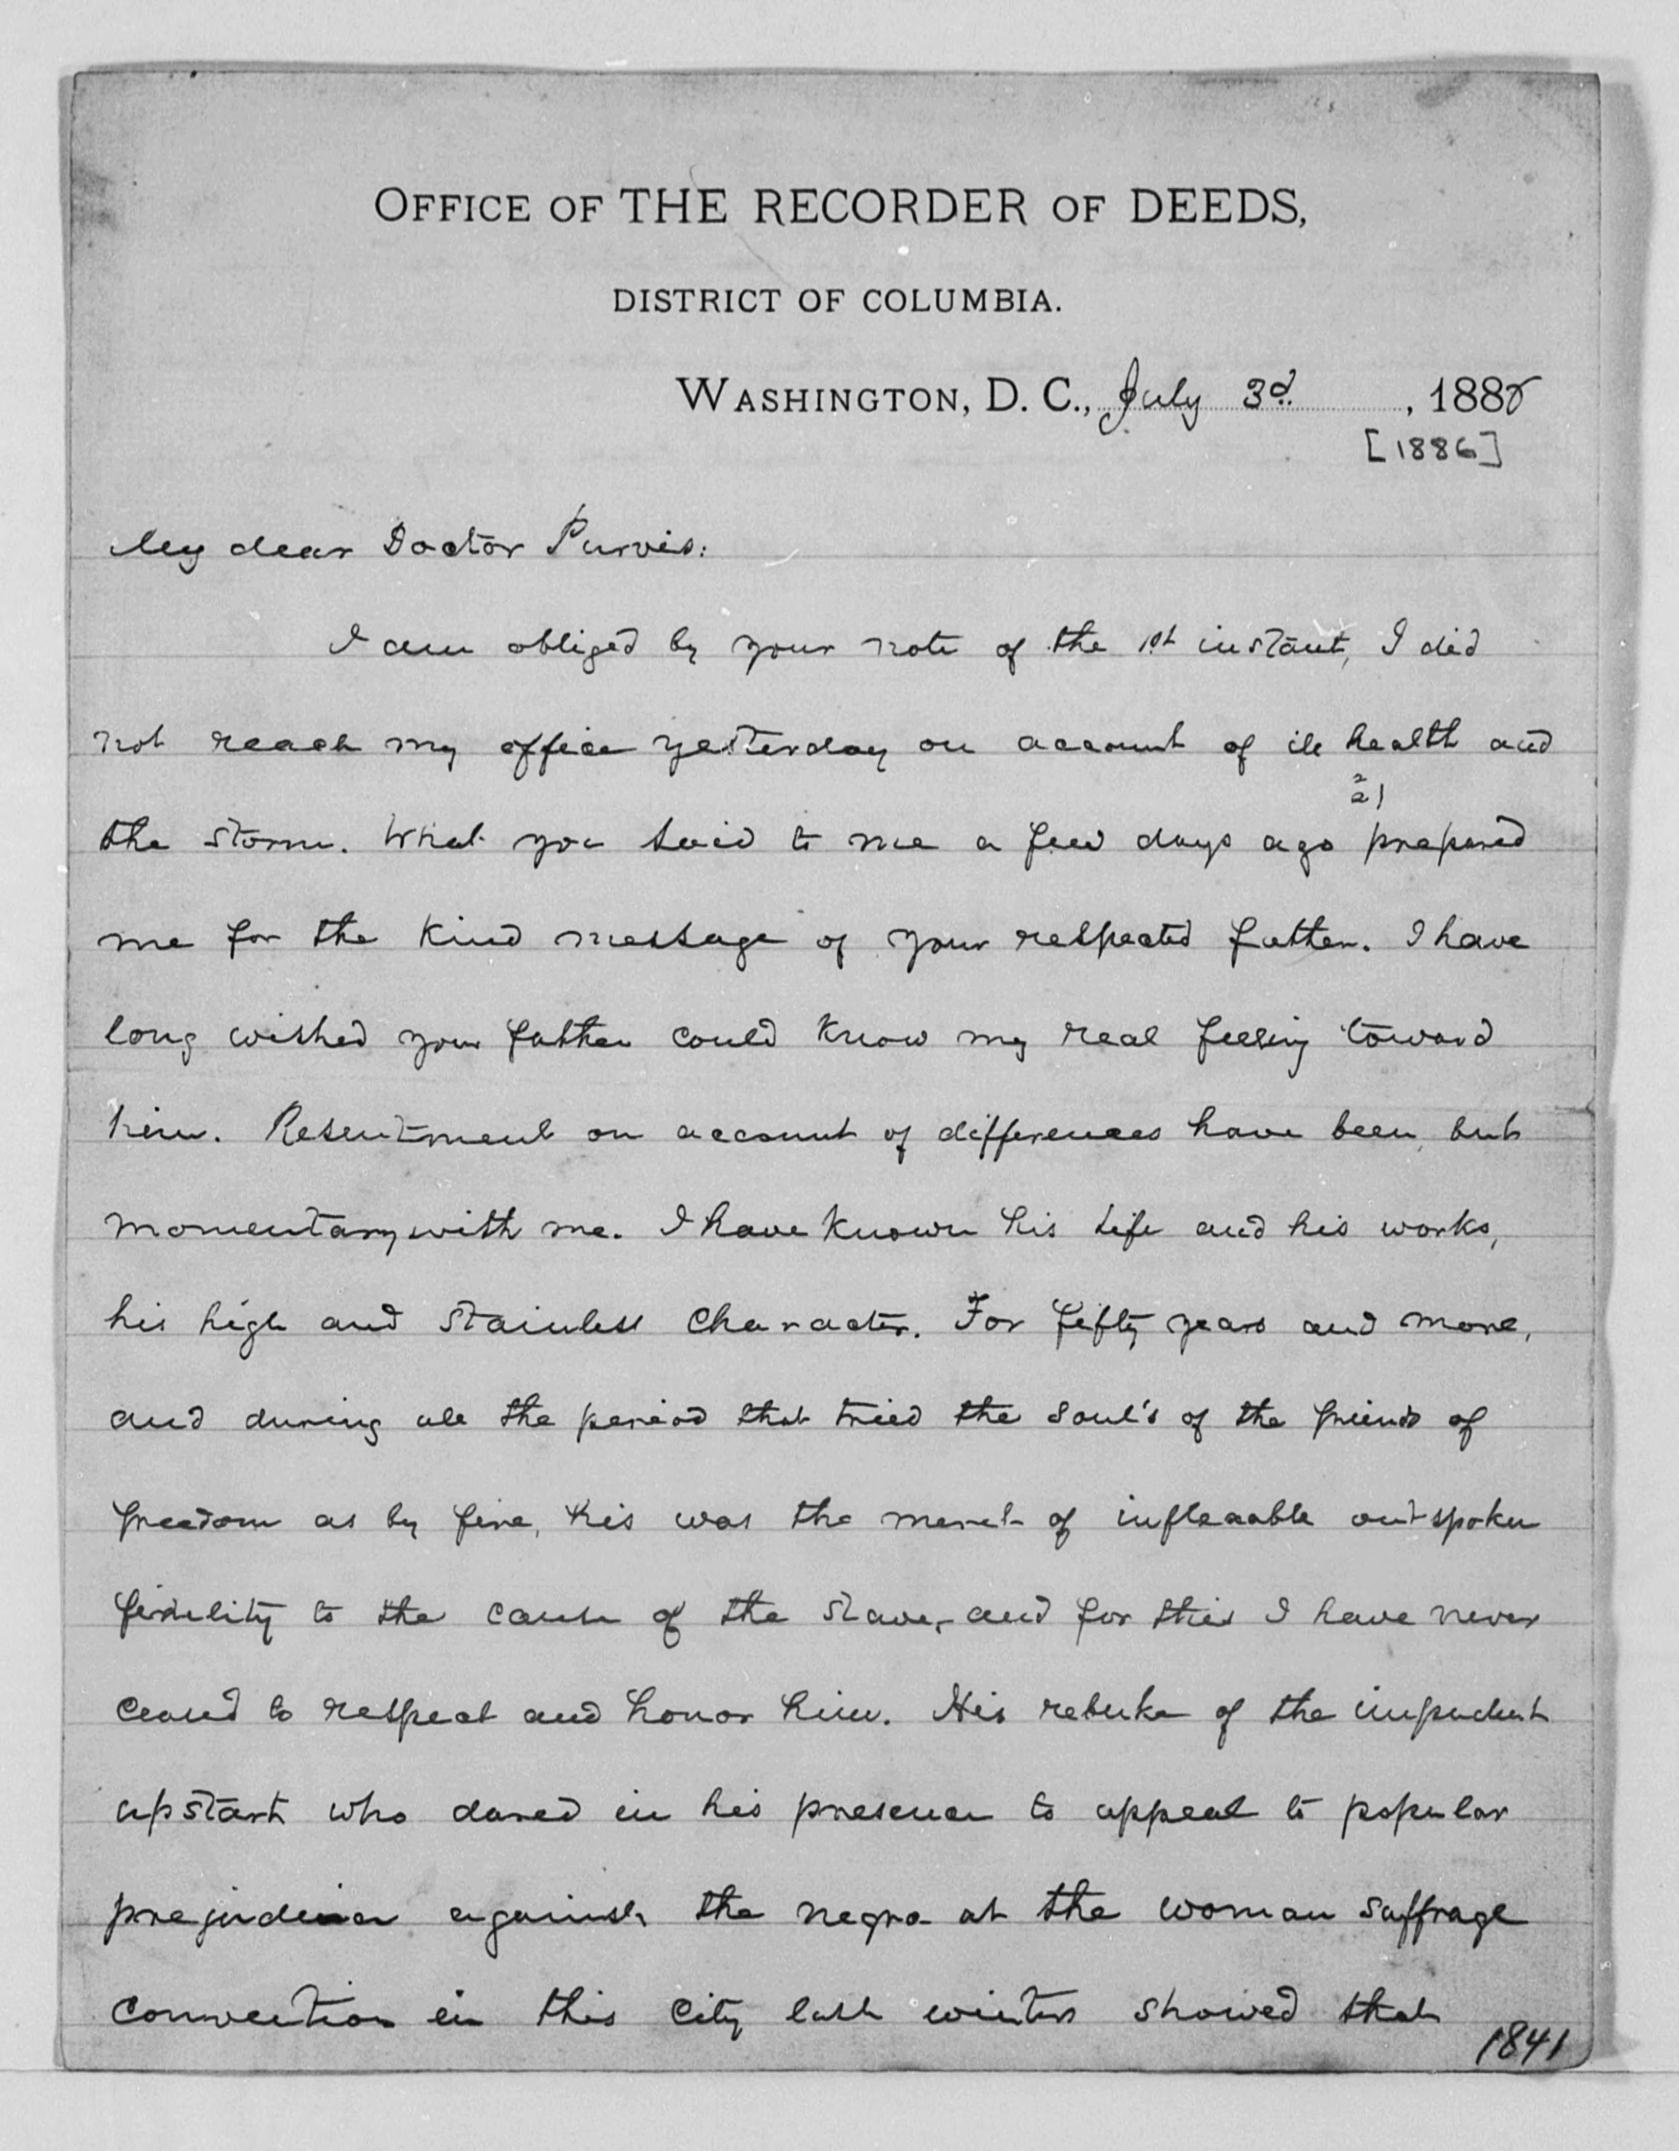 OFFICE OF THE RECORDER OF DEEDS,
DISTRICT OF COLUMBIA.
WASHINGTON, D. C., July 3d, 188
[1886]
My dear Doctor Purvis:
I am obliged by your note of the 1st instant, I did
not reach my office yesterday on account of ill health and
the storm. What you said to me a few days ago prepared
me for the kind message of your respected father. I have
long wished your father could know my real feeling toward
him. Resentment on account of differences have been but
momentary with me. I have known his life and his works,
his high and stainless character. For fifty years and more,
and during all the period that tried the soul's of the friends of
freedom as by fire, his was the merit of inflexable outspoken
fidelity to the cause of the slave, and for this I have never
ceased to respect and honor him. His rebuke of the impudent
upstart who dared in his presence to appeal to popular
prejudice against the negro at the woman suffrage
convention in this city last winter showed that
1841